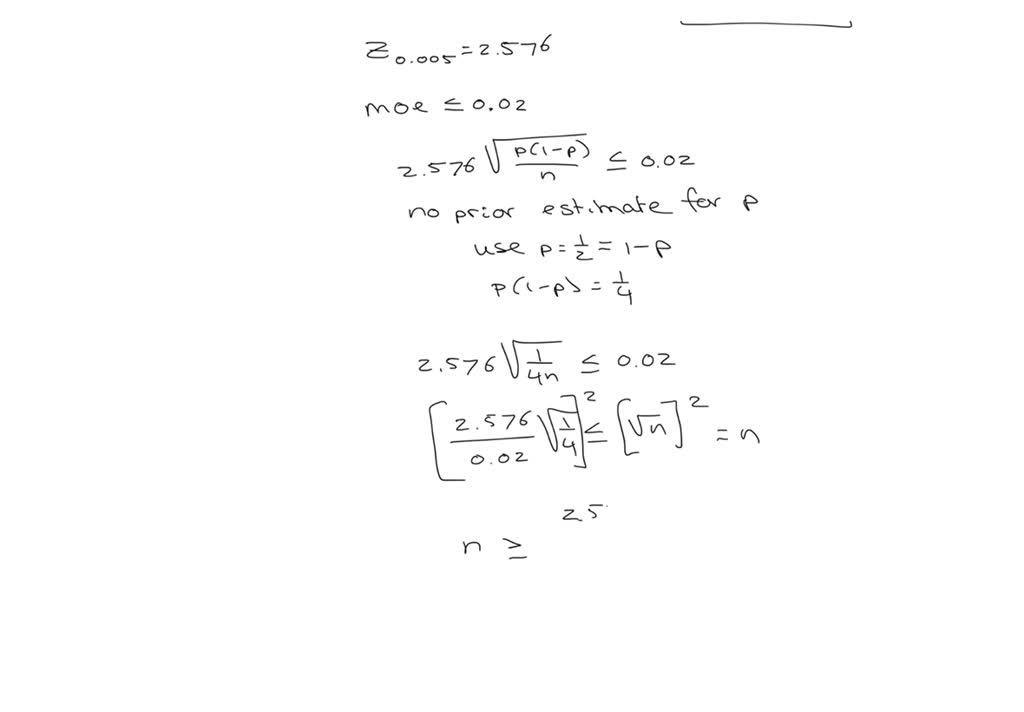 Z0.005 = 2.576
moe ≤ 0.02
2.576 √(p(1-p)/n) ≤ 0.02
no prior estimate for p
use p = 1/2 = 1-p
p(1-p) = 1/4
2.576 √(1/4n) ≤ 0.02
[2.576/0.02 √(1/4)]² ≤ [√n]² = n
25
n ≥